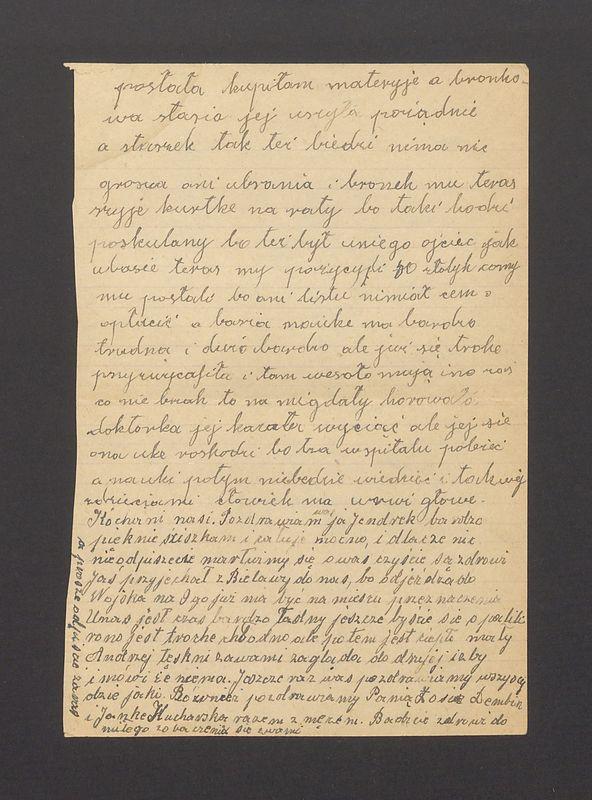 posłała kupiłam materyje a bronko-
wa stasia jej uszyła poriadnie
a staszek tak też biedzi nima nic
grosza ani ubrania i bronek mu teras
szyje kurtke na raty bo taki hodzi
poskulany bo też był uniego ojciec jak
ubasie teras my pozycyli 50 złotyk
mu posłało bo ani listu nimioł cem
opłacić a basia nauke ma bardzo
trudna i duzo bardzo ale juz się troke
przyzwycaiła i tam wesoło mają ino
co nie brak to na migdały horowała
doktorka jej kazała wyciąć ale jej się
ona uke roshodzi bo tza wspitalu polezeć
a nauki potym niebedzie wiedzieć i tak
zdzieciami cłowiek ma urwi głowe.
Kochani nasi. Pozdrawiam was ja Jendrek bardzo
pięknie sciskam i całuje mocno, i dlacze nic
nieodpiszecie martwimy się owas czyście są zdrowi
Jaś przyjechał z Bielawy do nas, bo odjeżdża do
Wojska na 8go już ma być na miescu przeznaczenia
Unas jest czas bardzo ładny jeszcze byście się opalili
rono jest troche chłodno ale potem jest ciepło mały
Andrzej teskni zawami zagląda do drugiej izby
i mówi że niema. Jeszcze raz was pozdrawiamy wszyscy
dzieciaki. Również pozdrawiamy Panią Zosie Dembin
i Janke Kucharska razem z męzem. Bądzcie zdrowi do
miłego zobaczenia się zwami
a prosze odpisać zaraz